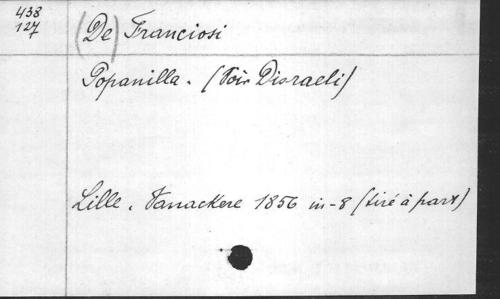 438
127
(De) Franciosi
Popanilla. (Voir Disraeli)
Lille. Vanackere 1856 in-8 (tiré à part)